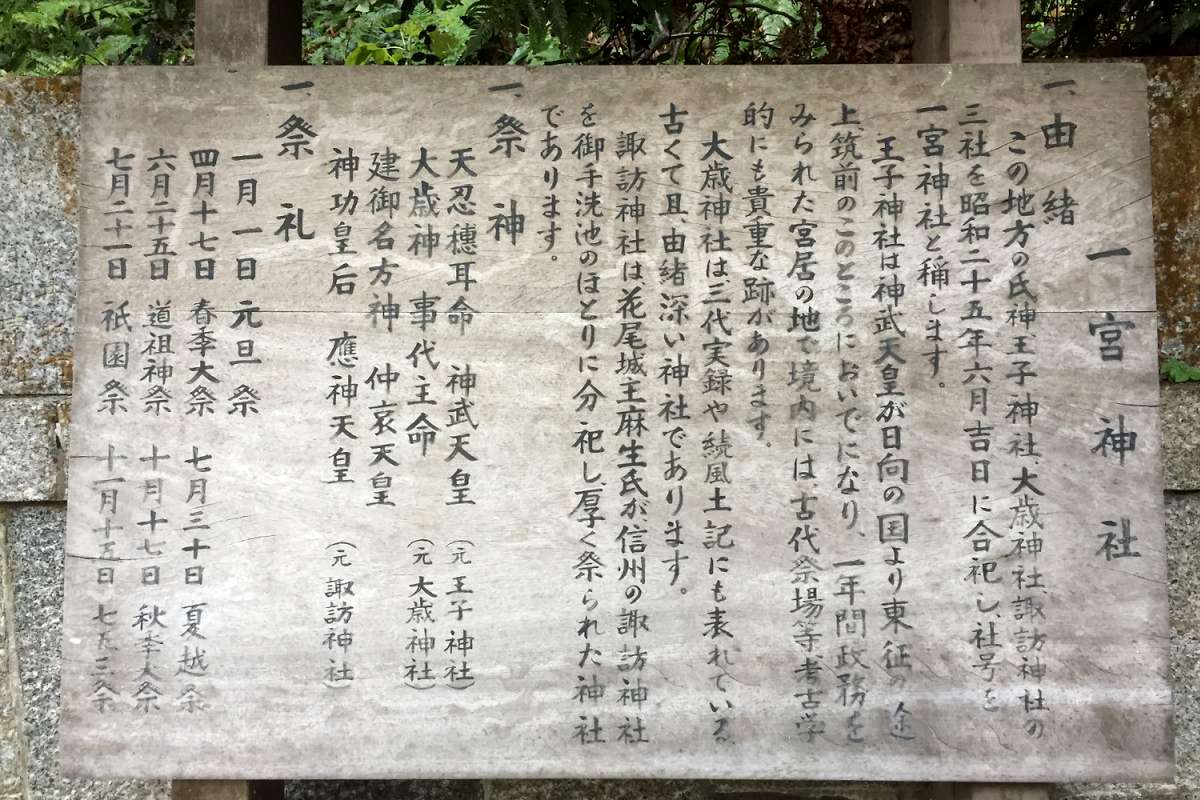 一宮神社
一、由緒
この地方の氏神王子神社、大歳神社、諏訪神社の
三社を昭和二十五年六月吉日に合祀し、社号を
一宮神社と稱します。
王子神社は神武天皇が日向の国より東征の途
上、筑前のこのところにおいでになり、一年間政務を
みられた宮居の地で境内には、古代祭場等考古学
的にも貴重な跡があります。
大歳神社は、三代実録や続風土記にも表れている
古くて且、由緒深い神社であります。
諏訪神社は花尾城主麻生氏が、信州の諏訪神社
を御手洗池のほとりに分祀し、厚く祭られた神社
であります。
一、祭神
天忍穗耳命 神武天皇 (元 王子神社)
大歳神 事代主命 (元 大歳神社)
建御名方神 仲哀天皇
神功皇后 應神天皇 (元 諏訪神社)
一、祭礼
一月一日 元旦祭
四月十七日 春季大祭 七月三十日 夏越祭
六月二十五日 道祖神祭 十月十七日 秋季大祭
七月二十一日 祇園祭 十一月十五日 七五三祭